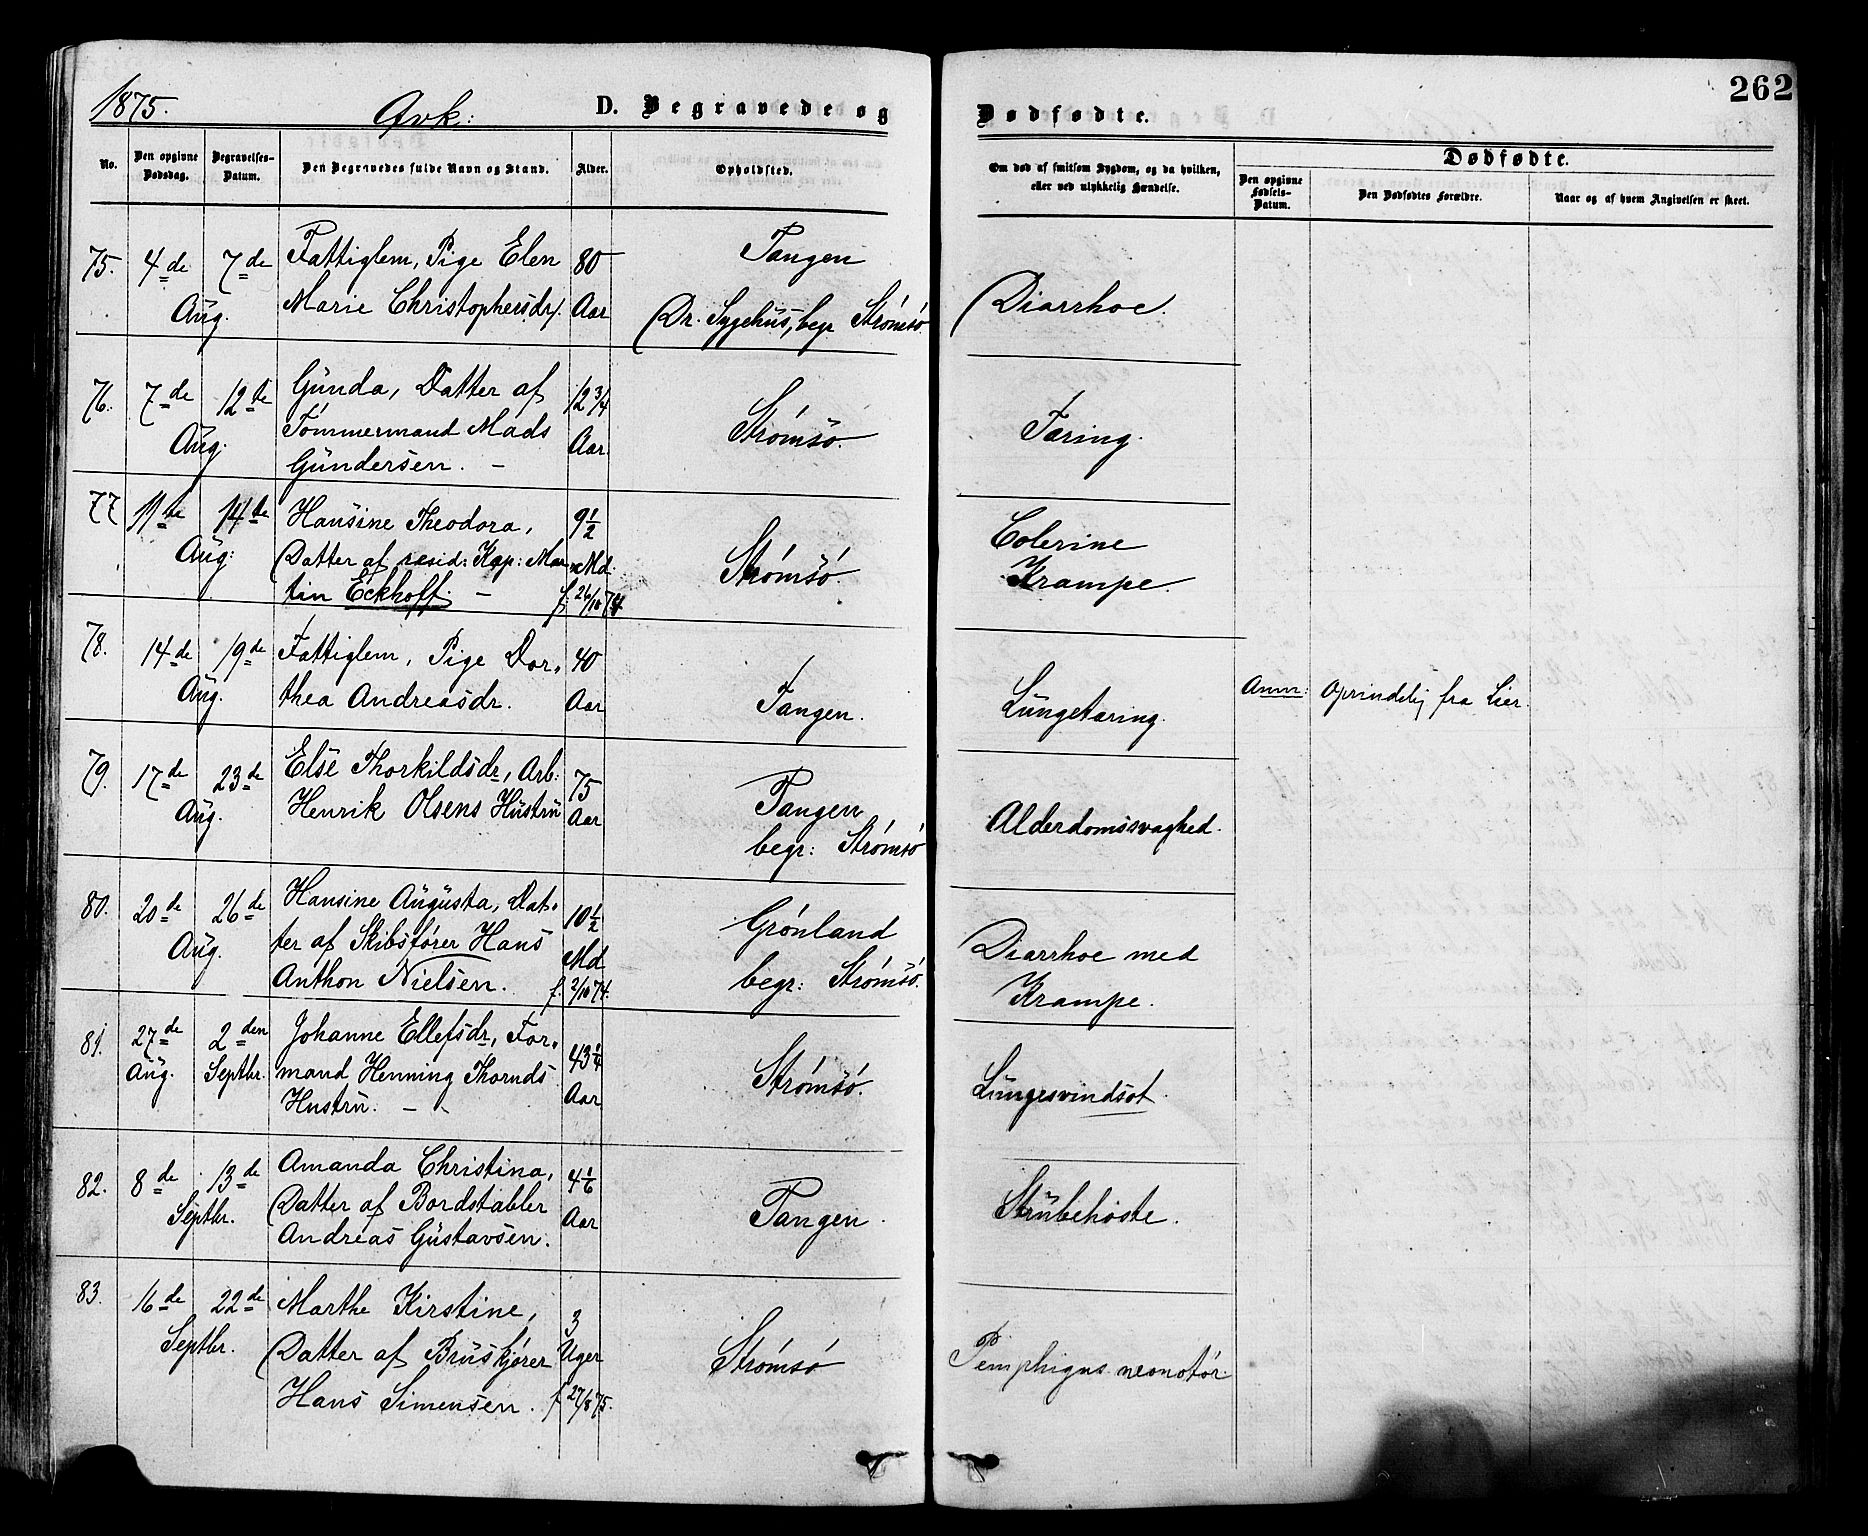 1875. Qvk: D. Begravede og Dødfødte. 262
No. Den opgivne Dødsdag. Begravelses-Datum. Den Begravedes fulde Navn og Stand. Alder. Opholdsted. Om død af smitsom Sygdom, og da hvilken, eller ved ulykkelig Hændelse. Dødfødte.
Den opgivne Fødsels-Datum. Den Dødfødtes Forældre. Naar og af hvem Angivelsen er skeet.
75. 4de 7de Fattiglem, Pige Elen 80 Tangen
Aug. Marie Christophersdr. Aar (Dr. Sygehus, begr Strømsö Diarrhoe.
76. 7de 12te Gunda, Datter af 12 3/4
Aug. Tømmermand Mads Aar Strømsö Tæring.
Gundersen. -
77 11te 14de Hansine Theodora, 9 1/2 Colerine
Aug: Datter af resid: Kap: Mar- Md. Strømsö. Krampe.
tin Eckhoff. - f. 26/10 74
78. 14de 19de Fattiglem, Pige Dor- 40
Aug. thea Andreasdr. Aar Tangen. Lungetæring. Anm: Oprindelig fra Lier.
79. 17de 23de Else Thorkildsdr, Arb: 75 Tangen
Aug. Henrik Olsens Hustru Aar begr: Strømsö Alderdomssvaghed.
80. 20de 26de Hansine Augusta, Dat- 10 1/2 Grønland
Aug. ter af Skibsfører Hans Md begr: Strømsö. Diarrhoe med
Anthon Nielsen. f. 2/10 74. Krampe.
81. 27de 2den Johanne Ellefsdr, For- 43 1/4
Aug. Septbr. mand Henning Thornds Aar Strømsö. Lungesvindsot.
Hustru. - -
82. 8de 13de Amanda Christina, 4 1/6
Septbr. Datter af Bordstabler Aar Tangen. Strubehoste.
Andreas Gustavsen.
83. 16de 22de Marthe Kirstine, 3
Septbr. Datter af Bruskjører Uger Strømsö Pemphigus neonatör.
Hans Simensen. f. 27/8 75.